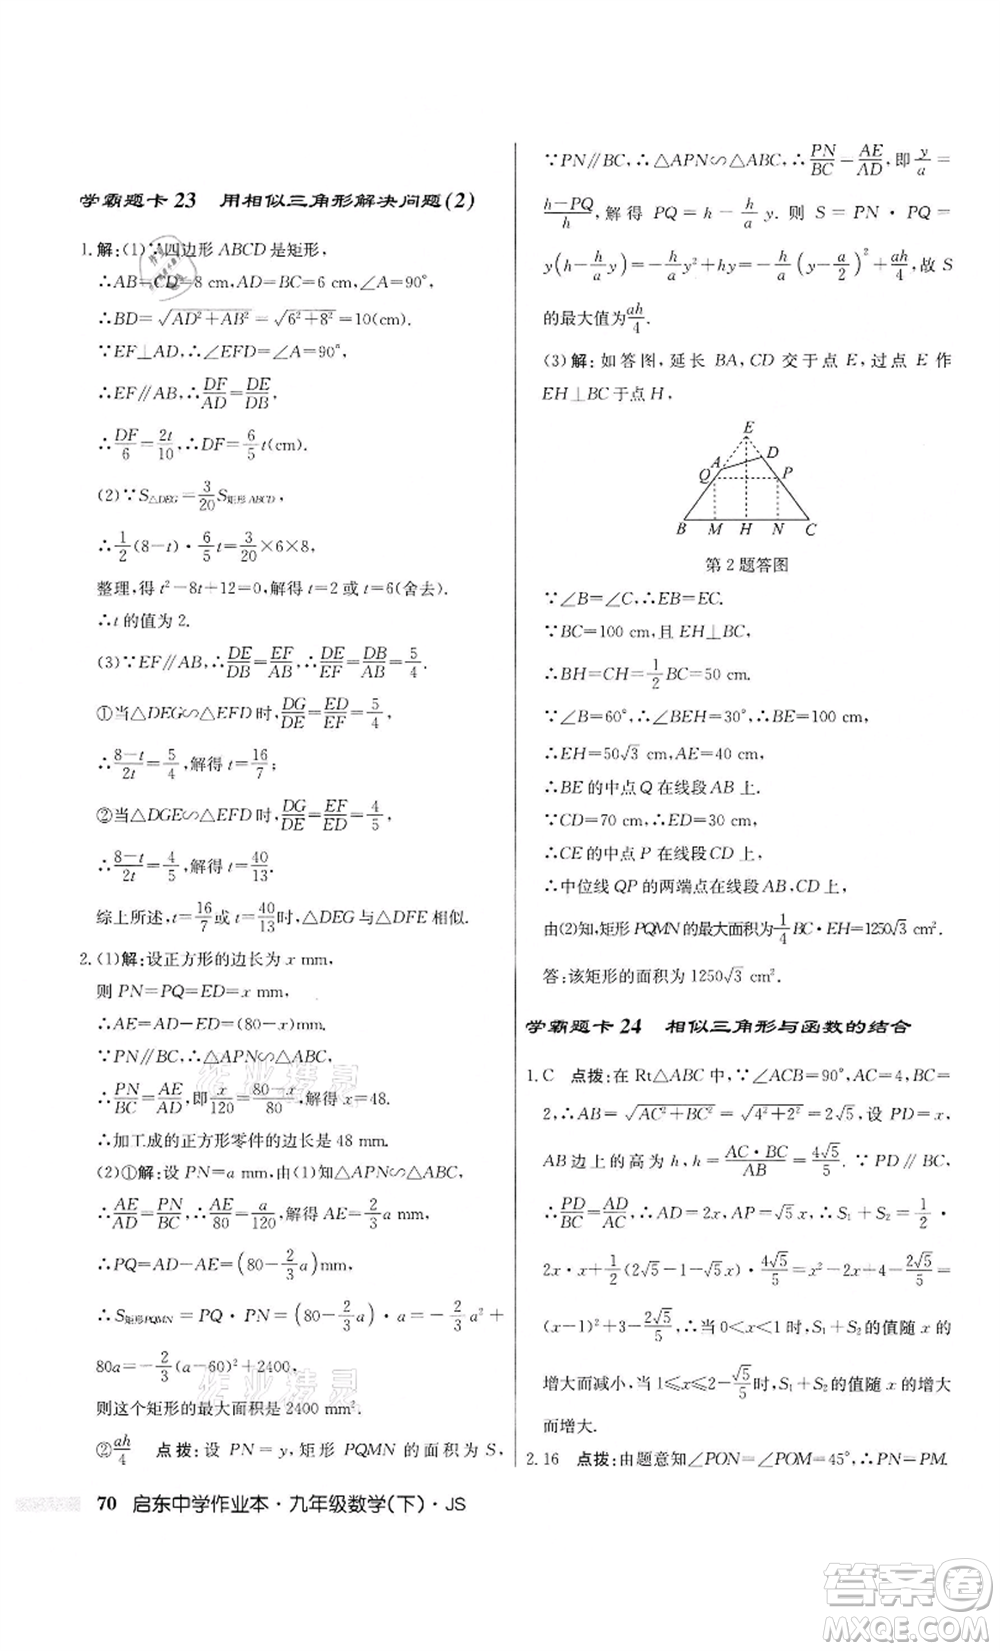 学霸题卡 23　用相似三角形解决问题(2)
1.解:(1)∵四边形 ABCD 是矩形,
∴AB=CD=8 cm,AD=BC=6 cm,∠A=90°,
∴BD=√(AD²+AB²)=√(6²+8²)=10(cm).
∵EF⊥AD,∴∠EFD=∠A=90°,
∴EF∥AB,∴DF/AD=DE/DB,
∴DF/6=2t/10,∴DF=6/5 t(cm).
(2)∵S△DEG=3/20 S矩形ABCD,
∴1/2(8-t)·6/5 t=3/20×6×8,
整理,得 t²-8t+12=0,解得 t=2 或 t=6(舍去).
∴t 的值为 2.
(3)∵EF∥AB,∴DE/DB=EF/AB,∴DE/EF=DB/AB=5/4.
①当△DEG∽△EFD 时,DG/DE=ED/EF=5/4,
∴(8-t)/2t=5/4,解得 t=16/7;
②当△DGE∽△EFD 时,DG/DE=EF/ED=4/5,
∴(8-t)/2t=4/5,解得 t=40/13.
综上所述,t=16/7或 t=40/13时,△DEG与△DFE 相似.
2.(1)解:设正方形的边长为 x mm,
则 PN=PQ=ED=x mm,
∴AE=AD-ED=(80-x)mm.
∵PN∥BC,∴△APN∽△ABC,
∴PN/BC=AE/AD,即x/120=(80-x)/80,解得 x=48.
∴加工成的正方形零件的边长是 48 mm.
(2)①解:设 PN=a mm,由(1)知△APN∽△ABC,
∴AE/AD=PN/BC,∴AE/80=a/120,解得 AE=2/3 a mm,
∴PQ=AD-AE=(80-2/3 a)mm,
∴S矩形PQMN=PQ·PN=(80-2/3 a)·a=-2/3 a²+
80a=-2/3(a-60)²+2400,
则这个矩形的最大面积是 2400 mm².
②ah/4　点拨:设 PN=y,矩形 PQMN 的面积为 S,
70 启东中学作业本·九年级数学(下)·JS
∵PN∥BC,∴△APN∽△ABC,∴PN/BC=AE/AD,即y/a=
(h-PQ)/h,解得 PQ=h-h/a y.则 S=PN·PQ=
y(h-h/a y)=-h/a y²+hy=-h/a(y-a/2)²+ah/4,故 S
的最大值为ah/4.
(3)解:如答图,延长 BA,CD 交于点 E,过点 E 作
EH⊥BC 于点 H,
E
A
D
Q
P
B
M
H
N
C
第 2 题答图
∵∠B=∠C,∴EB=EC.
∵BC=100 cm,且 EH⊥BC,
∴BH=CH=1/2 BC=50 cm.
∵∠B=60°,∴∠BEH=30°,∴BE=100 cm,
∴EH=50√3 cm,AE=40 cm.
∴BE 的中点 Q 在线段 AB 上.
∵CD=70 cm,∴ED=30 cm,
∴CE 的中点 P 在线段 CD 上,
∴中位线 QP 的两端点在线段 AB,CD 上,
由(2)知,矩形 PQMN 的最大面积为1/4 BC·EH=1250√3 cm².
答:该矩形的面积为 1250√3 cm².
学霸题卡 24　相似三角形与函数的结合
1.C　点拨:在 Rt△ABC 中,∵∠ACB=90°,AC=4,BC=
2,∴AB=√(AC²+BC²)=√(4²+2²)=2√5,设 PD=x,
AB 边上的高为 h,h=AC·BC/AB=4√5/5.∵PD∥BC,
∴PD/BC=AD/AC,∴AD=2x,AP=√5x,∴S₁+S₂=1/2·
2x·x+1/2(2√5-1-√5x)·4√5/5=x²-2x+4-2√5/5=
(x-1)²+3-2√5/5,∴当 0<x<1 时,S₁+S₂ 的值随 x 的
增大而减小,当 1≤x≤2-√5/5时,S₁+S₂ 的值随 x 的增大
而增大.
2.16　点拨:由题意知∠PON=∠POM=45°,∴PN=PM.
作业精灵
作业精灵
答案卷
MXQE.COM